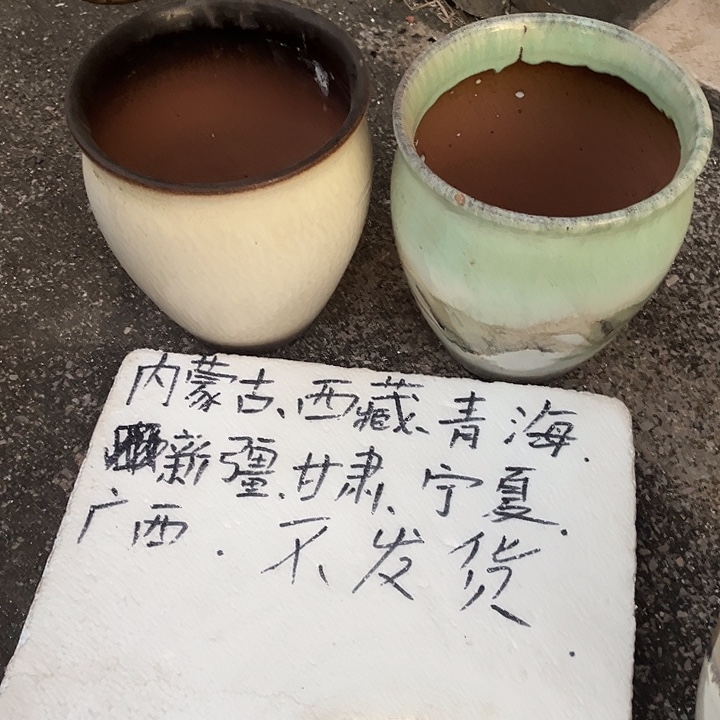 内蒙古、西藏、青海.
新疆.甘肃、宁夏.
广西.不发货.